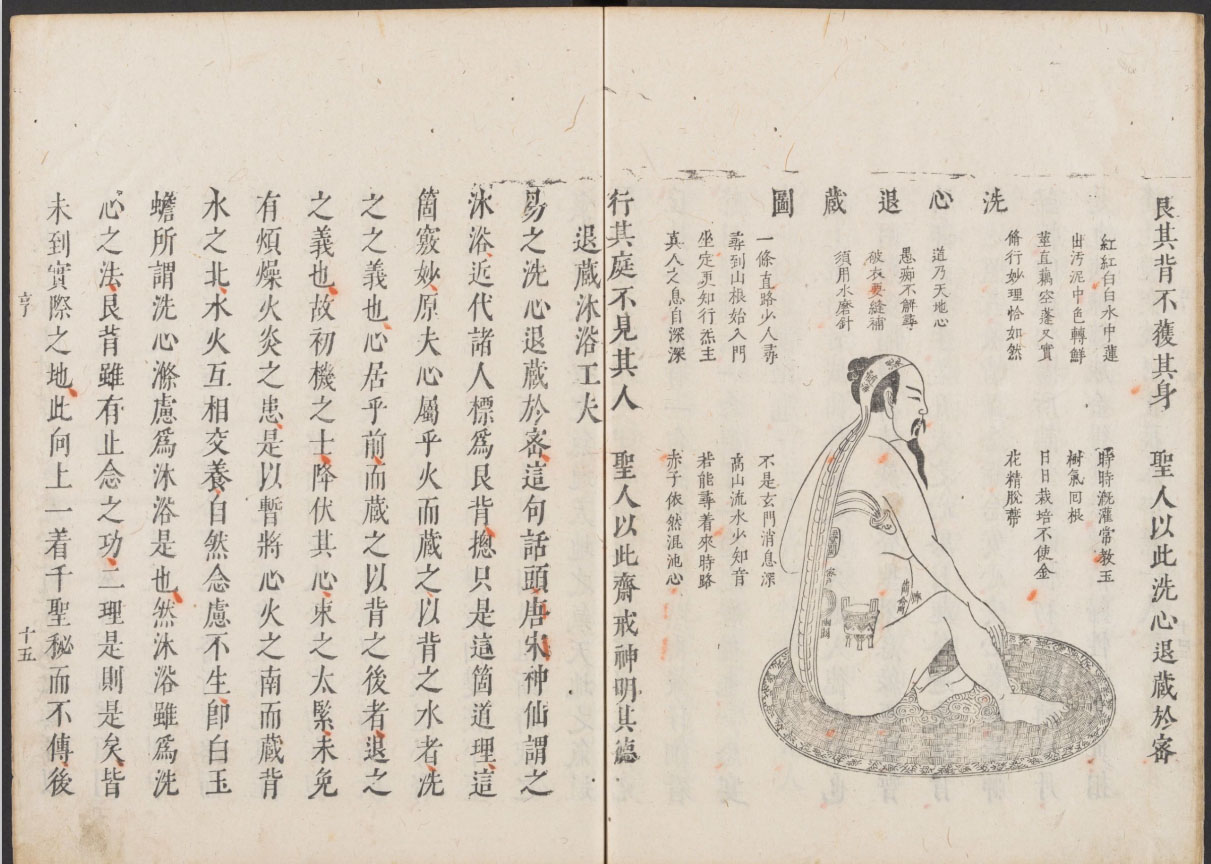 艮其背不獲其身
聖人以此洗心退藏於密
洗心退藏圖
紅紅白白水中蓮
出汚泥中色轉鮮
莖直藕空蓬又實
脩行妙理恰如然
時時漑灌常教玉
樹氣回根
日日栽培不使金
花精脫蔕
道乃天地心
愚痴不解尋
破衣要縫補
須用水磨針
一條直路少人尋
尋到山根始入門
坐定更知行炁主
真人之息自深深
不是玄門消息深
高山流水少知音
若能尋着來時路
赤子依然混池心
行其庭不見其人
聖人以此齋戒神明其德
退藏沐浴工夫
易之洗心退藏於密這句話頭唐宋神仙謂之
沐浴近代諸人標爲艮背摠只是這箇道理這
箇竅妙原夫心屬乎火而藏之以背之水者洗
之之義也心居乎前而藏之以背之後者退之
之義也故初機之士降伏其心束之太緊未免
有煩燥火炎之患是以暫將心火之南而藏背
水之北水火互相交養自然念慮不生卽白玉
蟾所謂洗心滌慮爲沐浴是也然沐浴雖爲洗
心之法艮背雖有止念之功二理是則是矣皆
未到實際之地此向上一着千聖秘而不傳後
亨
十五